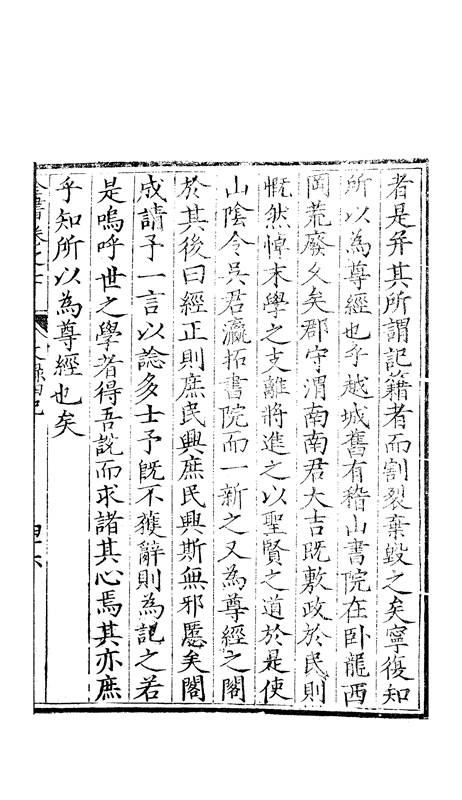 者是并其所謂記籍者而割裂棄毀之矣寧復知
所以為尊經也乎越城舊有稽山書院在卧龍西
岡荒廢久矣郡守渭南南君大吉既敷政於民則
慨然悼末學之支離將進之以聖賢之道於是使
山陰令吳君瀛拓書院而一新之又為尊經之閣
於其後曰經正則庶民興庶民興斯無邪慝矣閣
成請予一言以諗多士予既不獲辭則為記之若
是嗚呼世之學者得吾說而求諸其心焉其亦庶
乎知所以為尊經也矣
全書卷之七
文錄四記